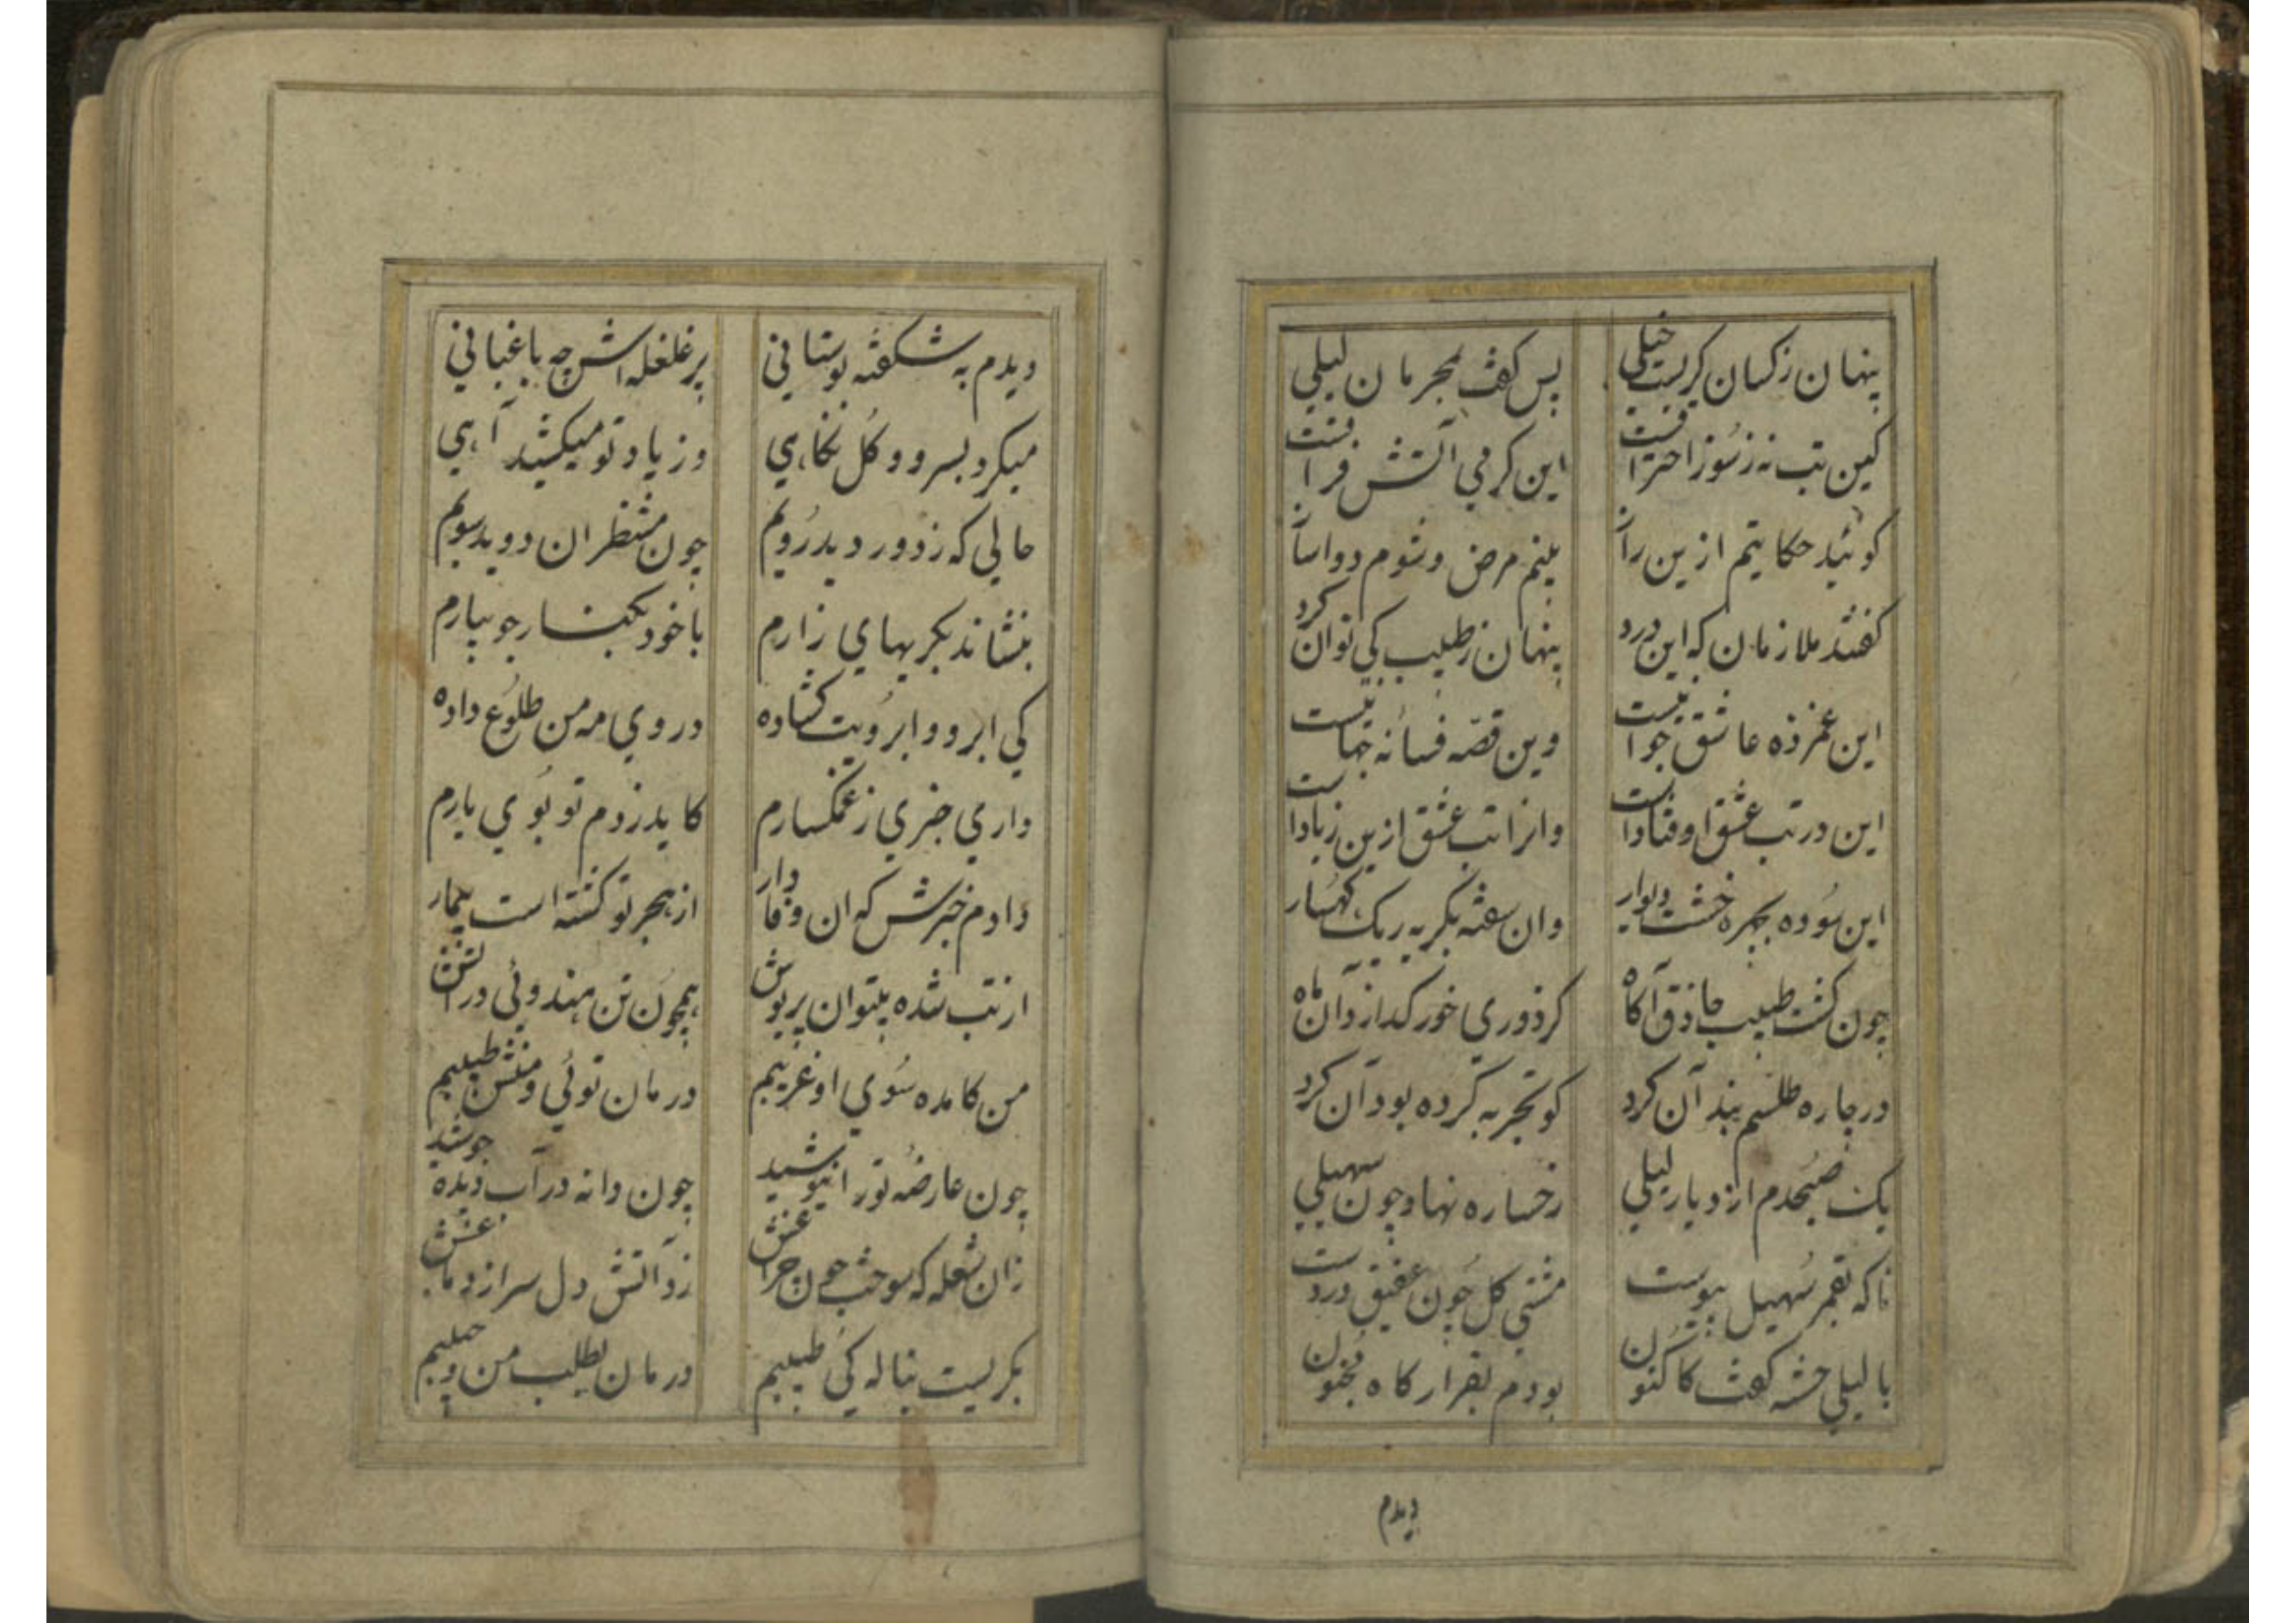 پنهان ز کسان گریست خیلی پس گفت بمحرمان لیلی
کین تب نه ز سوز احتراقست این گرمی آتش فراقست
گوئید حکایتم ازین راز بینم مرض و شوم دواساز
گفتند ملازمان که این درد پنهان ز طبیب کی توان کرد
این غمزده عاشق جوانیست وین قصه فسانه جهانیست
این در تب عشق اوفتادست وانرا تب عشق ازین زیادست
این سوده بچهره خشت دیوار وان سفته بگریه ریک کهسار
چون گشت طبیب حاذق آگاه کز دوری خور گدازد آن ماه
در چاره طلسم بند آن کرد کو تجربه کرده بود آن کرد
یک صبحدم از دیار لیلی رخساره نهاد چون سهیلی
تا که بقمر سهیل پیوست مشتی گل چون عقیق در دست
با لیلی خسته گفت کاکنون بودم بقرارگاه مجنون
دیدم
دیدم به شکفته بوستانی پر غلغله اش چه باغبانی
میکرد بسرو و گل نگاهی وز یاد تو میکشید آهی
حالی که ز دور دید رویم چون منتظران دوید سویم
بنشاند بگریهای زارم با خود بکنار جویبارم
کی ابرو و ابرویت گشاده در روی مه من طلوع داده
داری خبری ز غمگسارم کاید ز دم تو بوی یارم
دادم خبرش که ان وفادار از هجر تو گشته است بیمار
از تب شده بیتوان پریوش همچون تن هندوئی در آتش
من کامده سوی او غریبم درمان توئی و منش طبیبم
چون عارضه تو را نیوشید چون دانه در آب دیده جوشید
زان شعله که سوخت چون چراغش زد آتش دل سر از دماغش
بگریست بناله کی طبیبم درمان بطلب من و حبیبم